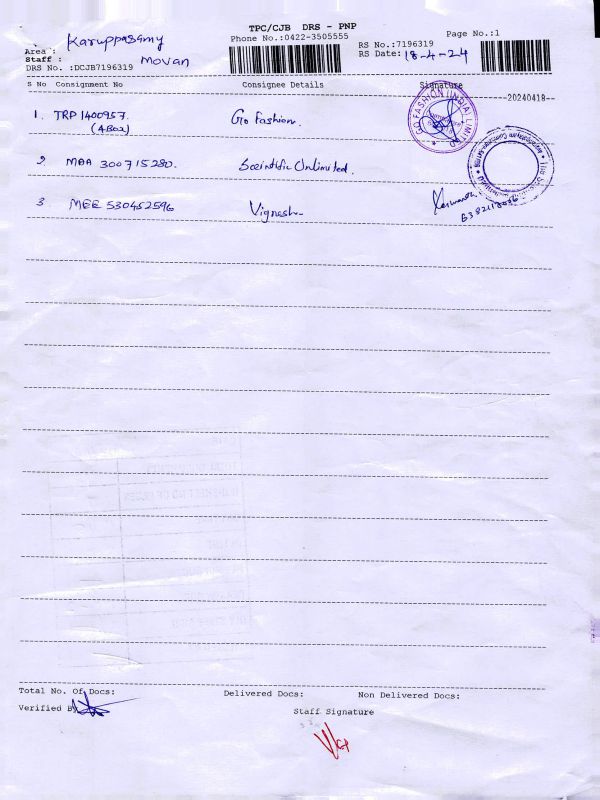 TPC/CJB DRS - PNP
Karuppasamy Phone No.:0422-3505555 Page No.:1
Area : RS No.:7196319
Staff : Movan RS Date: 18-4-24
DRS No. :DCJB7196319
S No Consignment No Consignee Details Signature
--20240418--
1. TRP 1400957. Go Fashion.
(4 Box)
GO FASHION (INDIA) LIMITED
2 MAA 300715280. Sceintific Unlimited.
3 MEE 530452596 Vignesh
Total No. Of Docs: Delivered Docs: Non Delivered Docs:
Verified By
Staff Signature